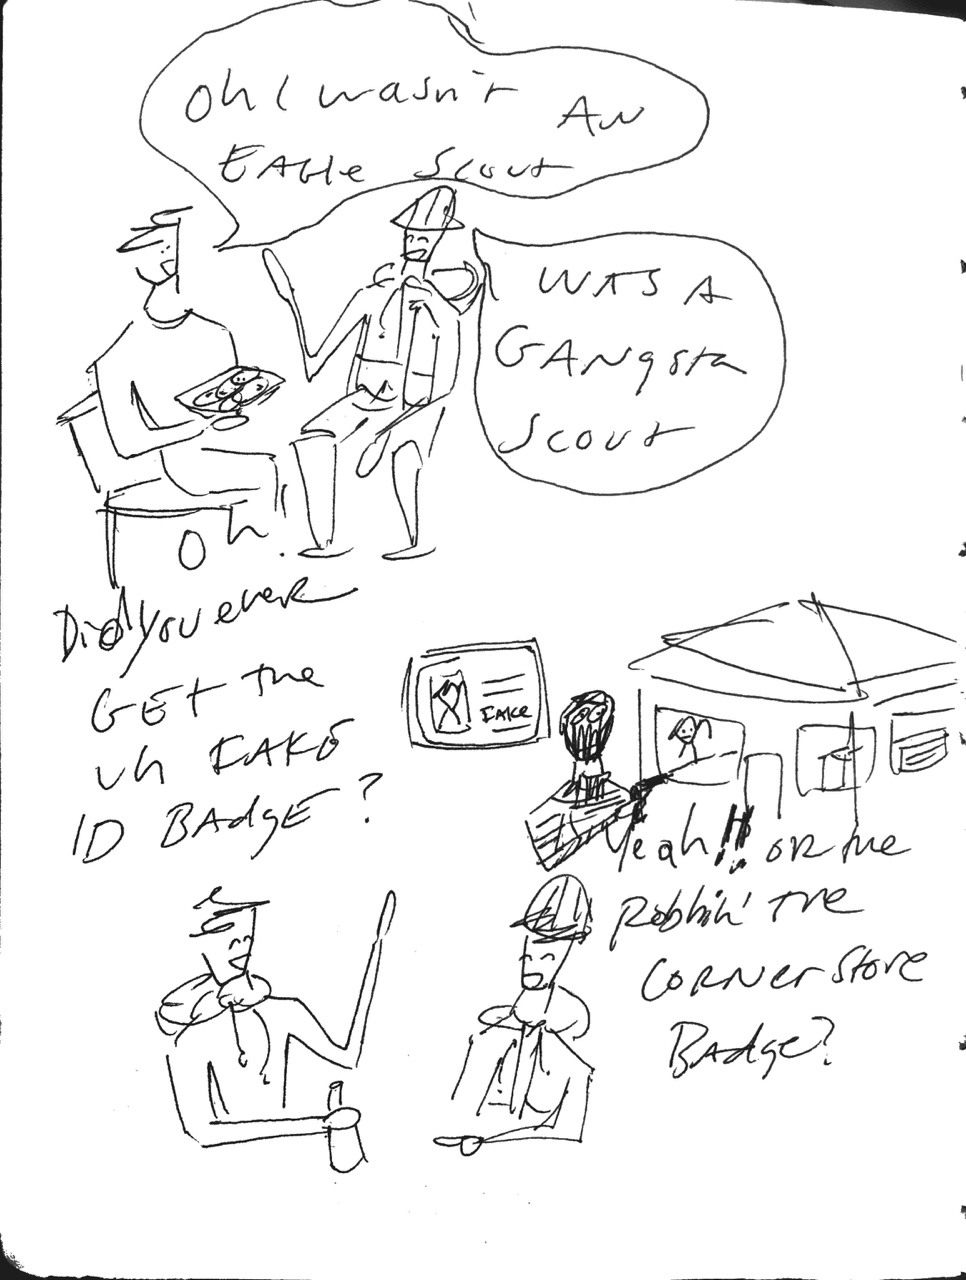 Oh I wasn't AN
EAGle Scout
WAS A
GANgsta
Scout
Oh.
Did you ever
GEt the
uh FAKE
ID BADgE?
FAKE
Yeah!! OR the
Robbin' the
CORNer Store
BADge?